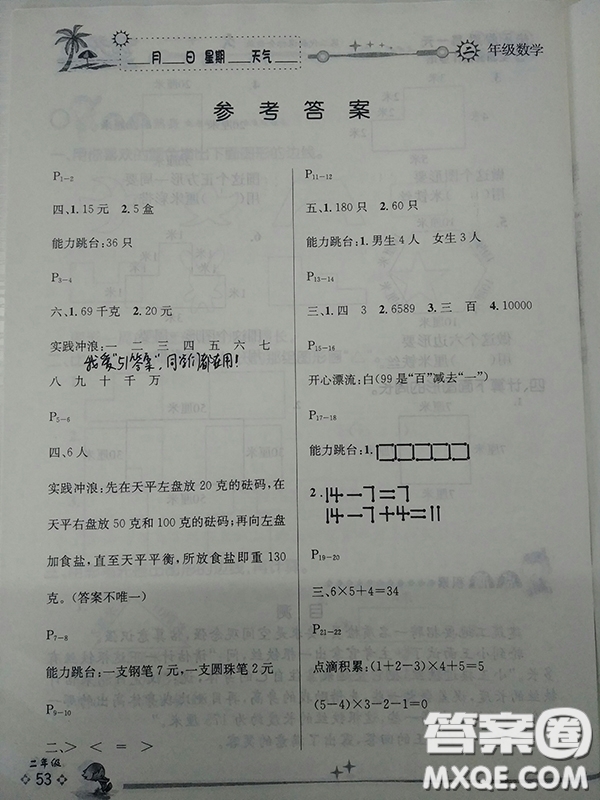 月 日 星期 天气 二 年级数学
参考答案
P1-2
四、1.15元 2.5盒
能力跳台:36只
P3-4
六、1.69千克 2.20元
实践冲浪:一 二 三 四 五 六 七
我爱"51答案",同学们都在用!
八 九 十 千 万
P5-6
四、6人
实践冲浪:先在天平左盘放20克的砝码,在
天平右盘放50克和100克的砝码;再向左盘
加食盐,直至天平平衡,所放食盐即重130
克。(答案不唯一)
P7-8
能力跳台:一支钢笔7元,一支圆珠笔2元
P9-10
二、> < = >
P11-12
五、1.180只 2.60只
能力跳台:1.男生4人 女生3人
P13-14
三、1.四 3 2.6589 3.三 百 4.10000
P15-16
开心漂流:白(99是“百”减去“一”)
P17-18
能力跳台:1.
2.14-7=7
14-7+4=11
P19-20
三、6×5+4=34
P21-22
点滴积累:(1+2-3)×4+5=5
(5-4)×3-2-1=0
二年级
53
答案圈
MXQE.COM